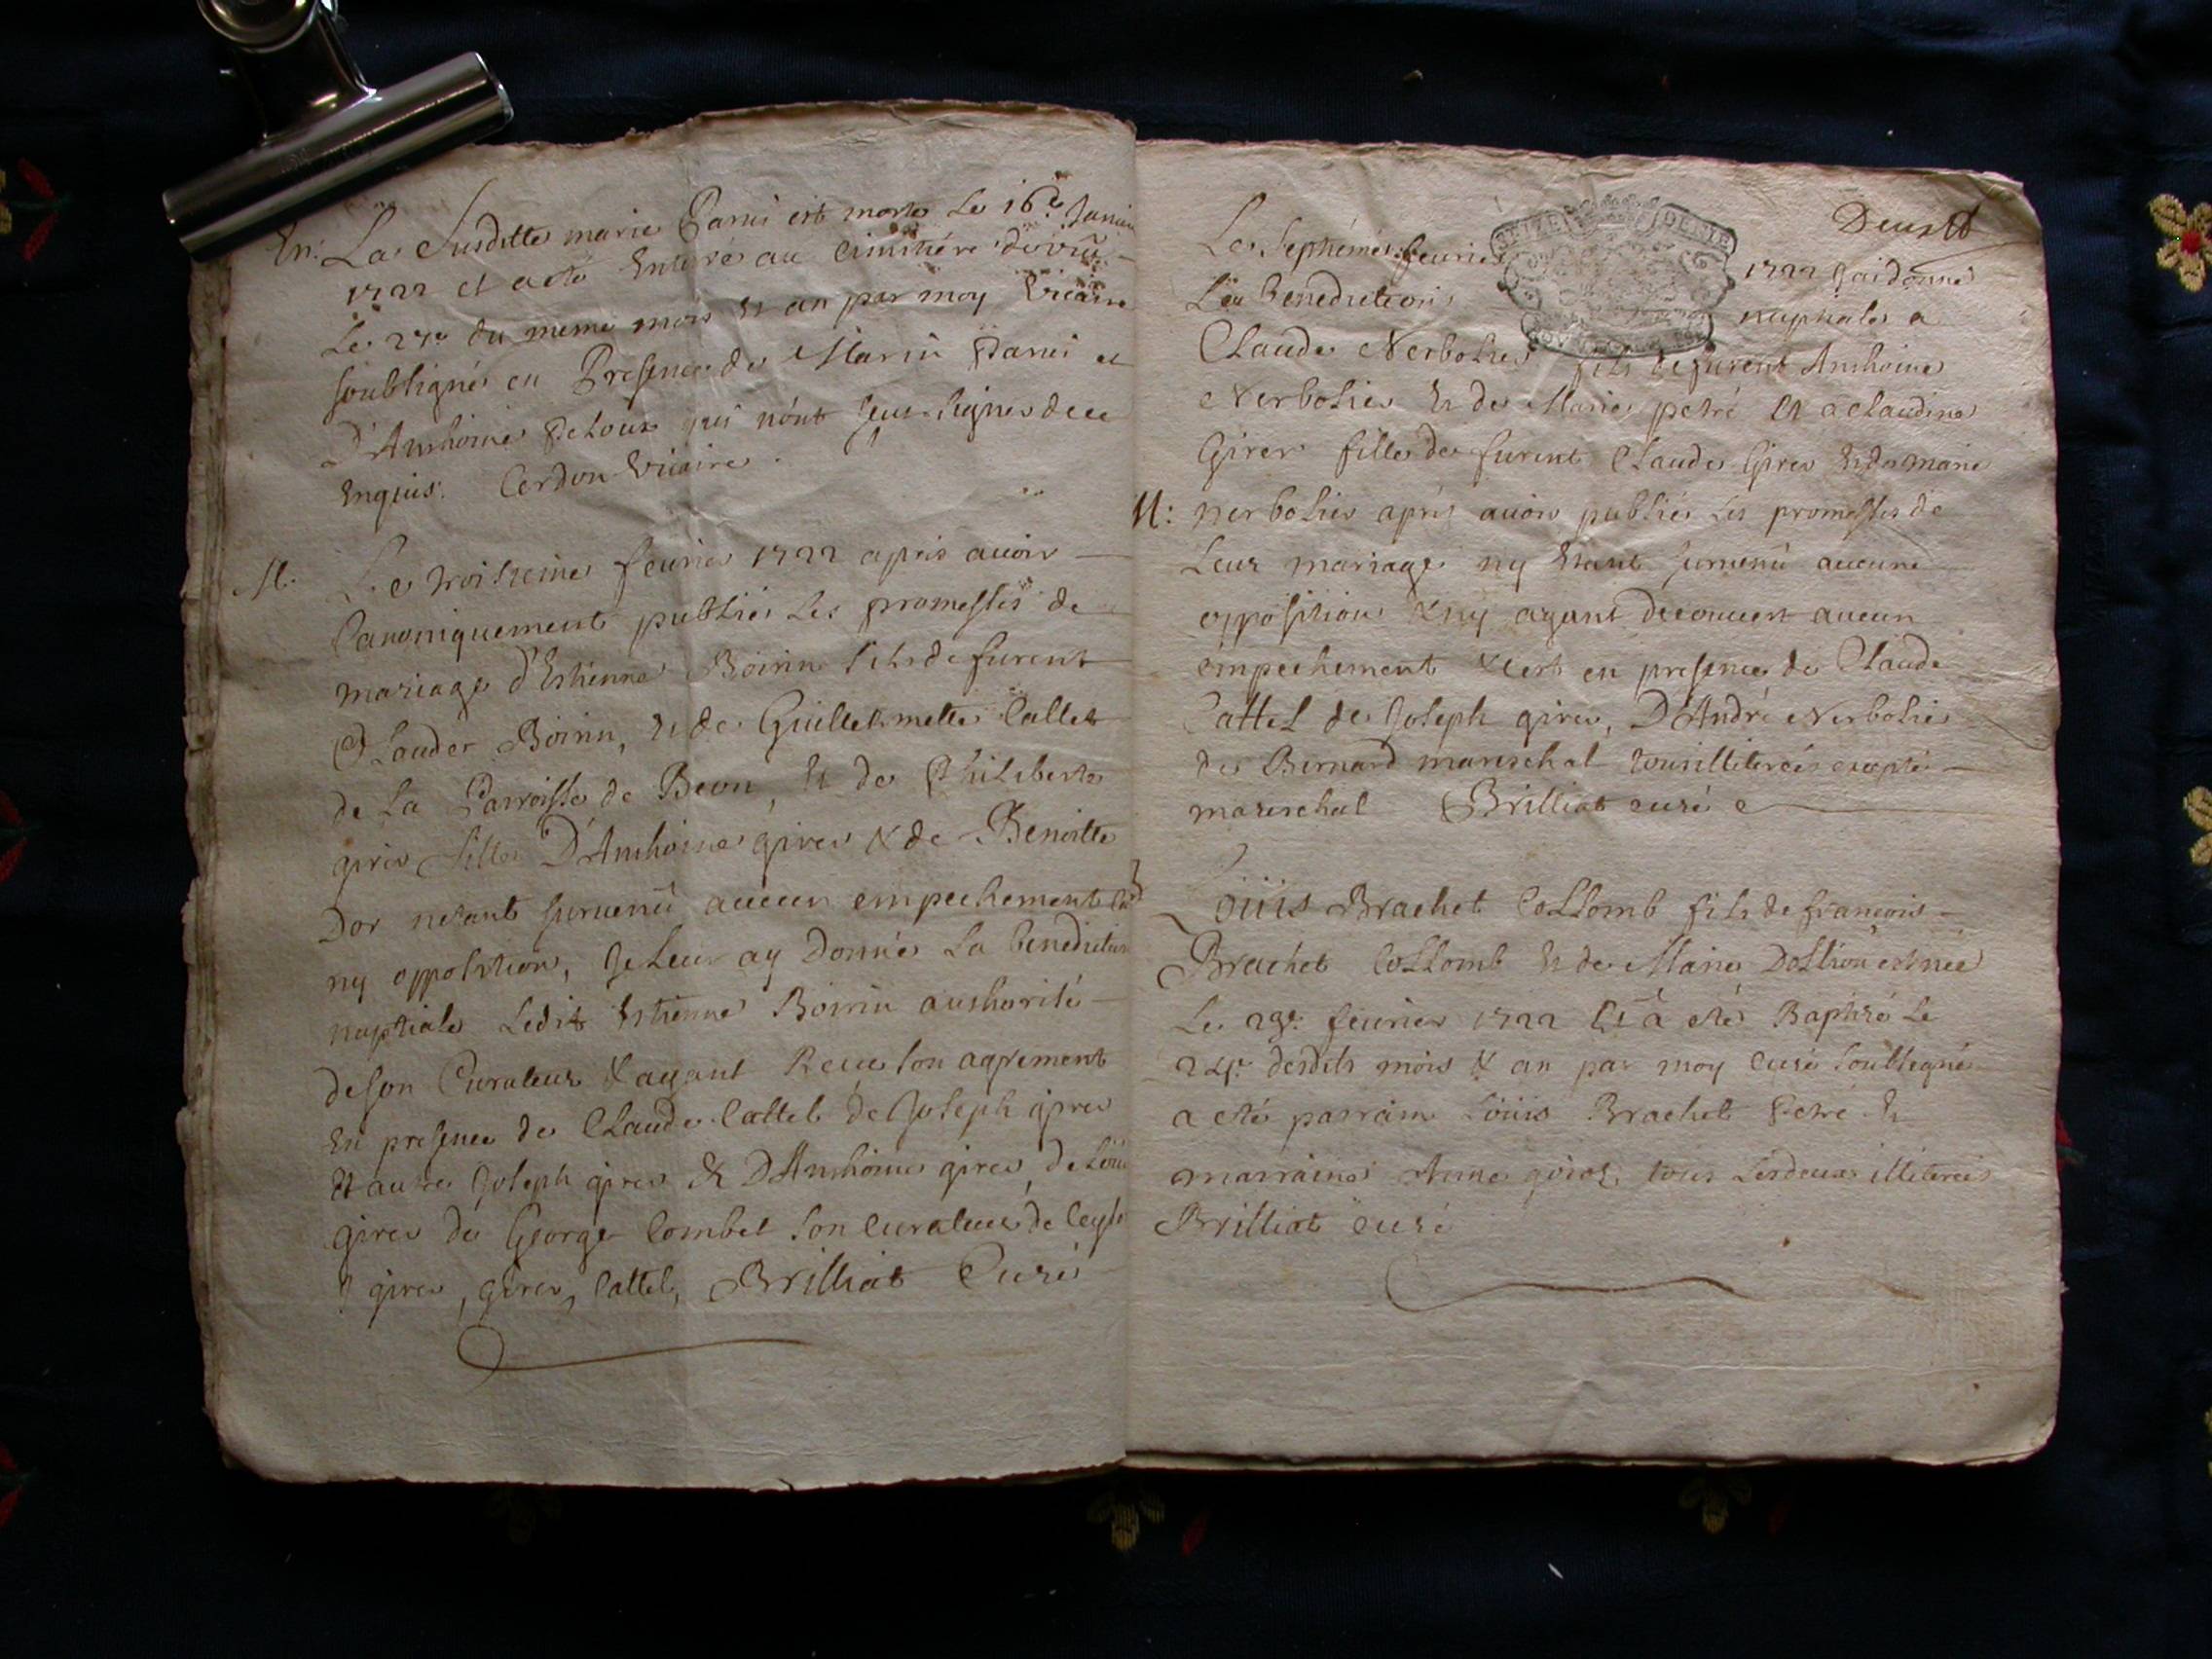 En. La susditte marie Parni est morte Le 16e Janvier
1722 et a eté Enterré au Cimitiére de vir
Le 27e du meme mois et an par moy Vicaire
soubsigné en Presence de Marin Parni et
D'Anthoine Peloux qui n'ont sceu signer de ce
Enquis. Cerdon Vicaire.
M. Le troisieme feurier 1722 apris auoir
Canoniquement publiés Les promesses de
mariage d'Estienne Boirin fils de furent
Claude Boirin, et de Guillelmette Callet
de La Parroisse de Beon, et de Philiberte
girer fille D'Anthoine girer & de Benoitte
Dor n'etant suruenu aucun empechement
ny opposition, Je Leur ay Donné La benediction
nuptiale Ledit Estienne Boirin authorisé
de son Curateur & ayant Receu son agrement
En presence de Claude Cattel de Joseph girer
Et autre Joseph girer & D'Anthoine girer, de Loüis
girer de George Combet son Curateur de Ceyse
girer, girer, Cattel, Brilliat Curé
SEIZE DENIE
Le Septiéme feurier 1722 Jai donné
La benediction nuptiale a
Claude Nerbolier fils de furent Anthoine
Nerbolier Et de Marie petré Et a Claudine
Girer fille de furent Claude Girer Et de Marie
M: nerbolier apris auoir publiés Les promesses de
Leur mariage ny Etant suruenu aucune
opposition & ny ayant decouuert aucun
empechement & cert en presence de Claude
Cattel de Joseph girer, D'André Nerbolier
de Bernard mareschal tous illiterés excepté
mareschal Brilliat curé
Loüis Brachet Collomb fils de francois
Brachet Collomb Et de Marie Dollion est née
Le 23e feurier 1722 Et a eté Baptisé Le
24e desdits mois & an par moy curé soubsigné
a eté parrain Loüis Brachet Petré Et
marraine Anne goioz tous Lesdeux illiterés
Brilliat curé